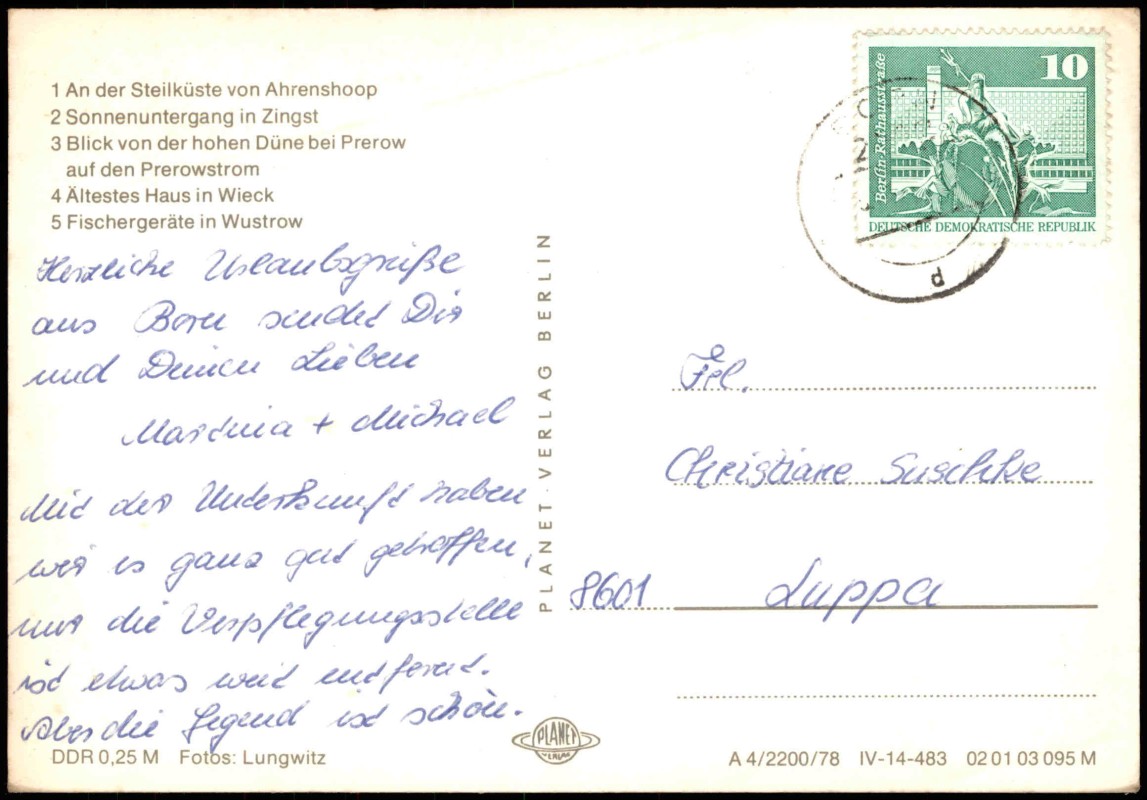 1 An der Steilküste von Ahrenshoop
2 Sonnenuntergang in Zingst
3 Blick von der hohen Düne bei Prerow
auf den Prerowstrom
4 Ältestes Haus in Wieck
5 Fischergeräte in Wustrow
Herzliche Urlaubsgrüße
aus Born sendet Dir
und Deinen Lieben
Martina + Michael
Mit der Unterkunft haben
wir es ganz gut getroffen,
nur die Verpflegungsstelle
ist etwas weit entfernt.
Aber die Gegend ist schön.
DDR 0,25 M Fotos: Lungwitz
PLANET-VERLAG BERLIN
PLANET
VERLAG
10
Berlin-Rathausstraße
DEUTSCHE DEMOKRATISCHE REPUBLIK
Frl.
Christiane Suschke
8601 Luppa
A 4/2200/78 IV-14-483 02 01 03 095 M